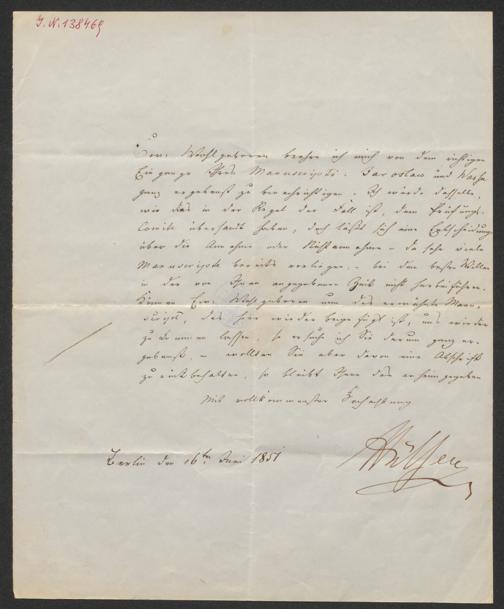 J. N. 138469
Ew. Wohlgeboren beehre ich mich von dem richtigen
Eingange Ihres Manuscripts: Jaroslaw und Wassa
ganz ergebenst zu benachrichtigen. Ich würde dasselbe,
wie das in der Regel der Fall ist, dem Prüfungs-
Comité übersandt haben, doch läßt sich eine Entscheidung
über die Annahme oder Nichtannahme – da sehr viele
Manuscripte bereits vorliegen – bei dem besten Willen
in der von Ihnen angegebenen Zeit nicht herbeiführen.
Können Ew. Wohlgeboren nun das erwähnte Manu-
script, das hier wieder beigefügt ist, uns wieder
zukommen lassen, so ersuche ich Sie darum ganz er-
gebenst, – wollten Sie aber davon eine Abschrift
zurückbehalten, so bleibt Ihnen das
Mit vollkommenster Hochachtung
Berlin den 16ten Juni 1851
Hülsen